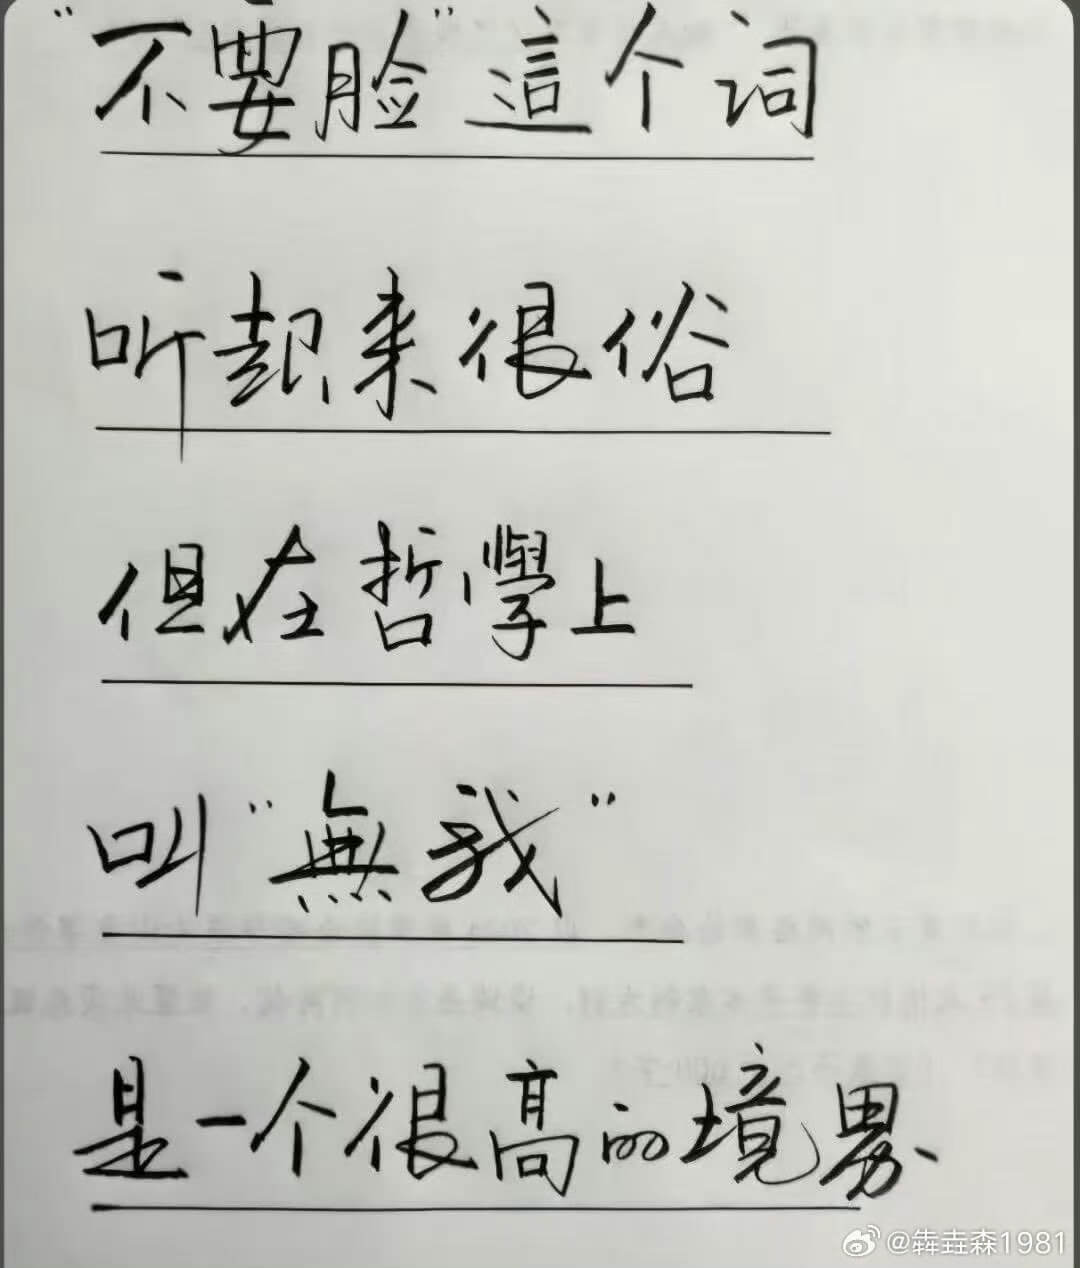 “不要脸”這个词
听起来很俗
但在哲學上
叫“無我”
是一个很高的境界、
@犇垚森1981